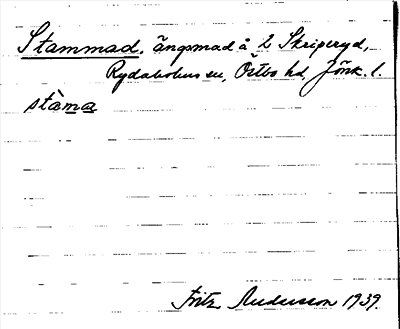 Stammad, ängsmad å 2 Skriperyd,
Rydaholms sn, Östbo hd, Jönk. l.
stàma
Fritz Andersson 1939